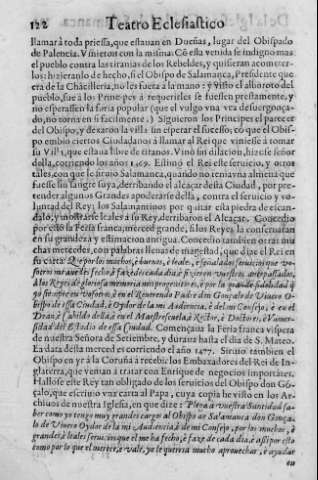 122 Teatro Eclesiastico
llamar à toda priessa, que estauan en Dueñas, lugar del Obispado
de Palencia. Vinieron con la misma: Cõ esta venida se indignò mas
el pueblo contra las tiranias de los Rebeldes, y quisieran acometer-
los: hizieranlo de hecho, si el Obispo de Salamanca, Presidente que
era de la Chãcilleria, no les fuera a la mano: y visto el alboroto del
pueblo, fue à los Principes à requerirles se fuessen prestamente, y
no esperassen la furia popular (que el vulgo vna vez desuergonça-
do, no torna en si facilmente.) Siguieron los Principes el parecer
del Obispo, y dexaron la villa sin esperar el sucesso; cõ que el Obis-
po embio ciertos Ciudadanos à llamar al Rey que viniesse à tomar
su Villa, que estaua libre de tiranos. Vino sin dilacion, hizose señor
della, corriendo los años 1469. Estimò el Rei este seruicio, y otros
tales, con que le siruio Salamanca, quando no tenia vna almena que
fuesse sin sangre suya, derribando el alcaçar desta Ciudad, por pre-
tender algunos Grandes apoderarse della, contra el seruicio y vo-
luntad del Rey; los Salamantinos por quitar esta piedra de escan-
dalo, y mostrarse leales à su Rey, derribaron el Alcaçar. Concedio
por esto la Feria franca; merced grande, si los Reyes la conseruaran
en su grandeza y estimacion antigua. Concedio tambien otras mu
chas mercedes, con palabras llenas de magestad, que dize el Rei en
su carta: Que por los muchos, è buenos, è leales, è señalados seruicios que vo-
sotros me auedes fecho è fazedes cada dia è fizieron vuestros antepassados,
A los Reyes de gloriosa memoria mis progenitores, è por la grande fidelidad q̃
yo siempre en vosotros, è en el Reuerendo Padre don Gonçalo de Viuero O-
bispo de essa Ciudad, è Oydor de la mi Audiencia, è del mi Consejo, è en el
Dean è Cabildo della: è en el Maestrescuela, è Rector, è Doctores, è Vniuer-
sidad del Estudio de essa Ciudad. Començaua la Feria franca vispera
de nuestra Señora de Setiembre, y duraua hasta el dia de S. Mateo.
La data desta merced es corriendo el año 1477. Siruio tambien el
Obispo en yr à la Coruña à recebir los Embaxadores del Rei de In-
glaterra, que venian à tratar con Enrique de negocios importantes.
Hallose este Rey tan obligado de los seruicios del Obispo don Gõ-
çalo, que escriuio vna carta al Papa, cuya copia he visto en los Ar-
chiuos de nuestra Iglesia, en que dize: Plega a vuestra Santidad sa-
ber como yo tengo muy grandes cargo al Obispo de Salamanca don Gonça-
lo de Viuero Oydor de la mi Audiencia, è de mi Consejo, por los muchos, è
grandes, è leales seruicios que el me ha fecho, è faze de cada dia, è assi por esto
como por lo que el merece, è vale, yo le querria mucho aprouechar, è ayudar
en